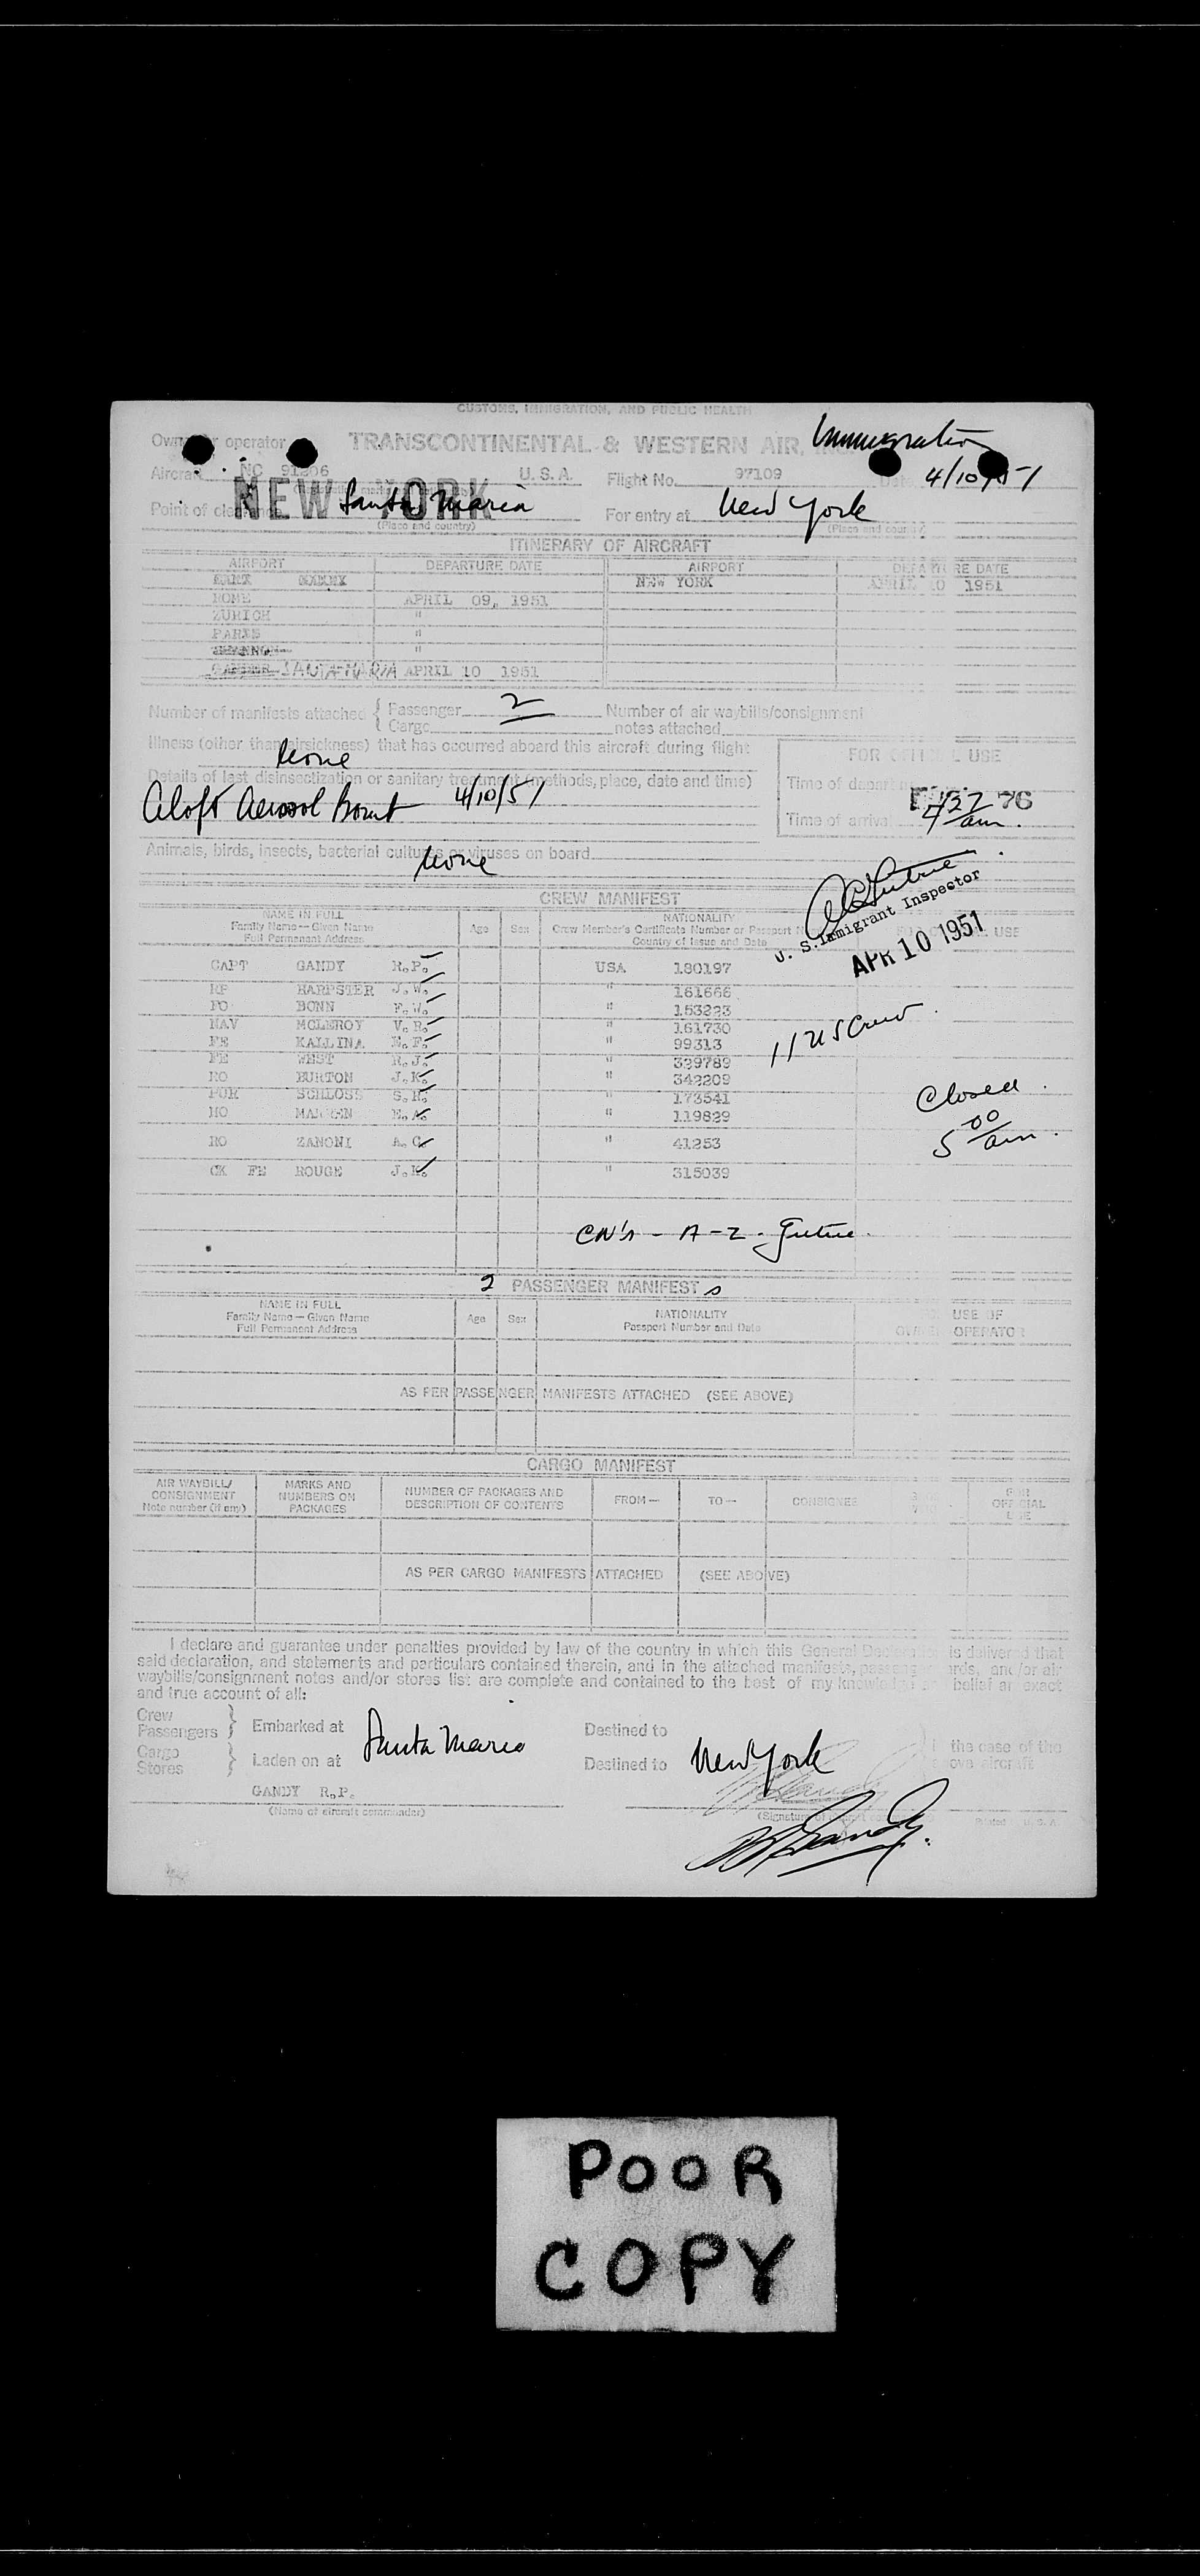 CUSTOMS, IMMIGRATION, AND PUBLIC HEALTH
Immigration
Owner or operator TRANSCONTINENTAL & WESTERN AIR, INC.
Aircraft NC 91206 U.S.A. Flight No. 97109 Date 4/10/51
NEW YORK
Point of clearance Santa Maria For entry at New York
(Place and country) (Place and country)
ITINERARY OF AIRCRAFT
AIRPORT DEPARTURE DATE AIRPORT DEPARTURE DATE
NEW YORK APRIL 10 1951
ROME APRIL 09, 1951
ZURICH "
PARIS "
SHANNON "
GANDER SANTA MARIA APRIL 10 1951
Number of manifests attached { Passenger 2 Number of air waybills/consignment
Cargo notes attached
Illness (other than airsickness) that has occurred aboard this aircraft during flight
None
FOR OFFICIAL USE
Details of last disinsectization or sanitary treatment (methods, place, date and time)
Aloft Aerosol Bomb 4/10/51
Time of departure
76
Time of arrival 4 37 am.
Animals, birds, insects, bacterial cultures or viruses on board
None
CREW MANIFEST
NAME IN FULL
Family Name—Given Name
Full Permanent Address
Age Sex
NATIONALITY
Crew Member's Certificate Number or Passport No.
Country of Issue and Date
USE
U. S. Immigrant Inspector
APR 10 1951
CAPT GANDY R.P. USA 180197
HARPSTER J.W. " 161666
FO BONN F.W. " 153223
NAV MCLEROY V.R. " 161730
FE KALLINA E.F. " 99313
FE WEST R.J. " 329789
RO BURTON J.K. " 342209
PUR SCHLOSS S.R. " 173541
HO E.A. " 119829
RO ZANONI A.C. " 41253
CK FE ROUGE J.K. " 315039
11 US Crew
Closed
5 00 am.
CN's - A-Z - Gutrie
2 PASSENGER MANIFEST s
NAME IN FULL
Family Name—Given Name
Full Permanent Address
Age Sex
NATIONALITY
Passport Number and Date
USE OF
OWNER OPERATOR
AS PER PASSENGER MANIFESTS ATTACHED (SEE ABOVE)
CARGO MANIFEST
AIR WAYBILL/
CONSIGNMENT
Note number (if any)
MARKS AND
NUMBERS ON
PACKAGES
NUMBER OF PACKAGES AND
DESCRIPTION OF CONTENTS
FROM—
TO—
CONSIGNEE
FOR
OFFICIAL
USE
AS PER CARGO MANIFESTS ATTACHED (SEE ABOVE)
I declare and guarantee under penalties provided by law of the country in which this General Declaration is delivered that
said declaration, and statements and particulars contained therein, and in the attached manifests, passenger cards, and/or air
waybills/consignment notes and/or stores list are complete and contained to the best of my knowledge and belief an exact
and true account of all:
Crew
Passengers } Embarked at Santa Maria Destined to
Cargo
Stores } Laden on at Destined to New York
in the case of the
above aircraft
GANDY R.P.
(Name of aircraft commander)
(Signature of aircraft commander)
Printed U.S.A.
RPGandy.
POOR
COPY